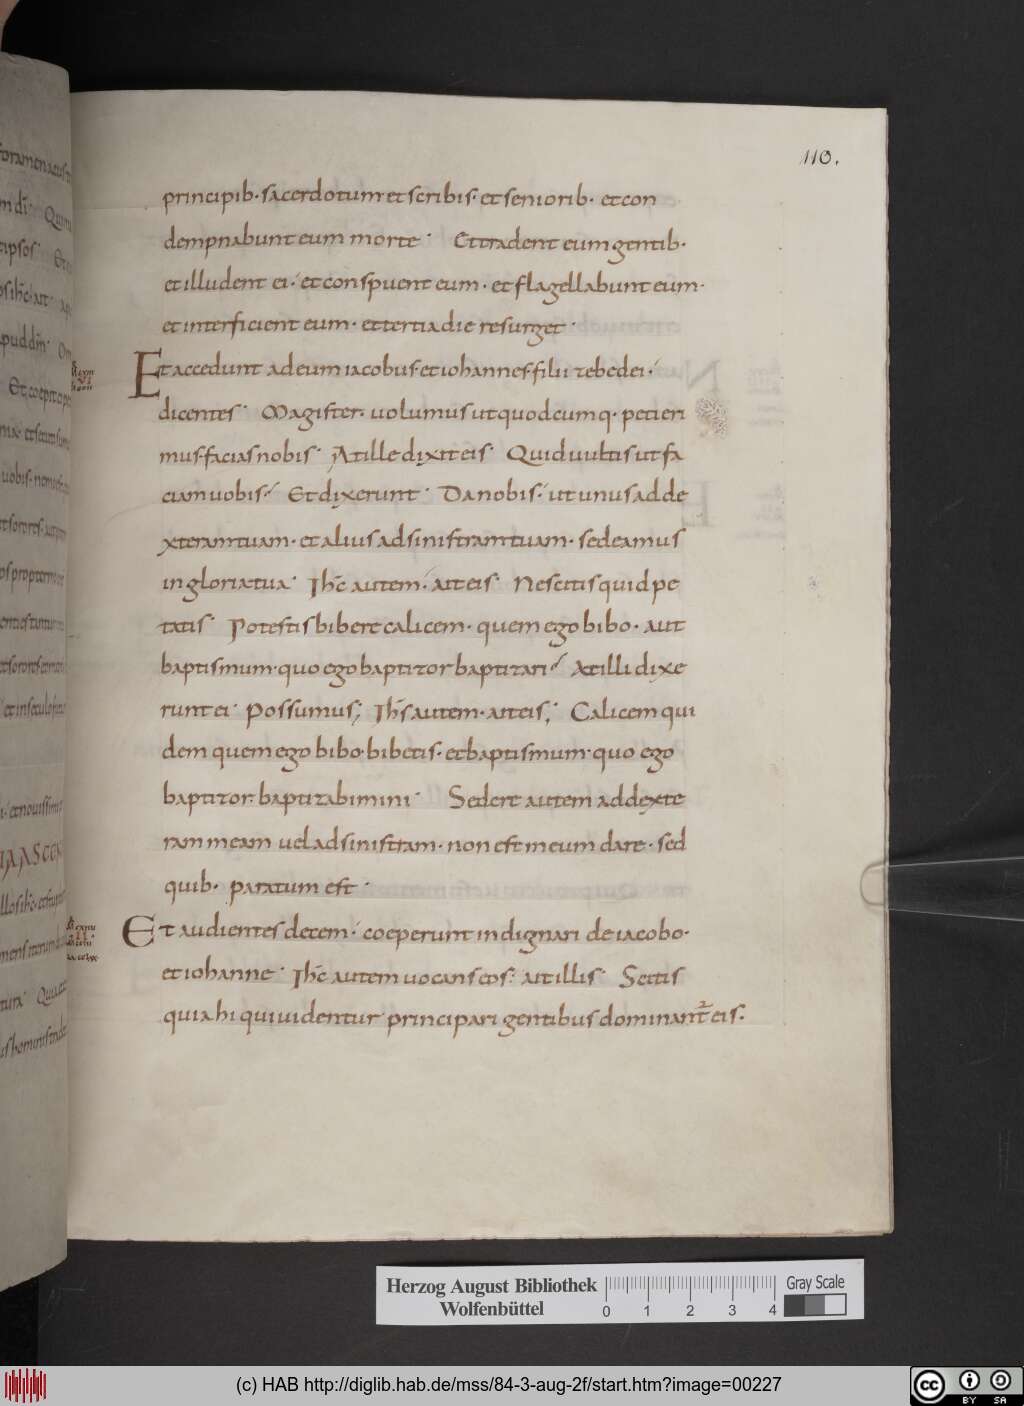 110.
principib· sacerdotum et scribis· et seniorib· et con
dempnabunt eum morte· Et tradent eum gentib·
et illudent ei· et conspuent eum· et flagellabunt eum·
et interficient eum· et tertia die resurget·
Et accedunt ad eum iacobus· et iohannes· filii zebedei·
dicentes· Magister· uolumus ut quodcumq· petieri
mus· facias nobis· At ille dixit eis· Quid uultis ut fa
ciam uobis· Et dixerunt· Da nobis· ut unus ad de
xteram tuam· et alius ad sinistram tuam· sedeamus
in gloria tua· Ihc autem· ait eis· Nescitis quid pe
tatis· Potestis bibere calicem· quem ego bibo· aut
baptismum· quo ego baptizor baptizari· At illi dixe
runt ei· Possumus; Ihs autem· ait eis; Calicem qui
dem quem ego bibo· bibetis· et baptismum· quo ego
baptizor· baptizabimini· Sedere autem ad dexte
ram meam uel ad sinistram· non est meum dare· sed
quib· paratum est·
Et audientes decem· coeperunt indignari de iacobo·
et iohanne· Ihc autem uocans eos· ait illis· Scitis
quia hi qui uidentur principari gentibus dominant eis·
Herzog August Bibliothek
Wolfenbüttel
0 1 2 3 4
Gray Scale
(c) HAB http://diglib.hab.de/mss/84-3-aug-2f/start.htm?image=00227
cc BY SA